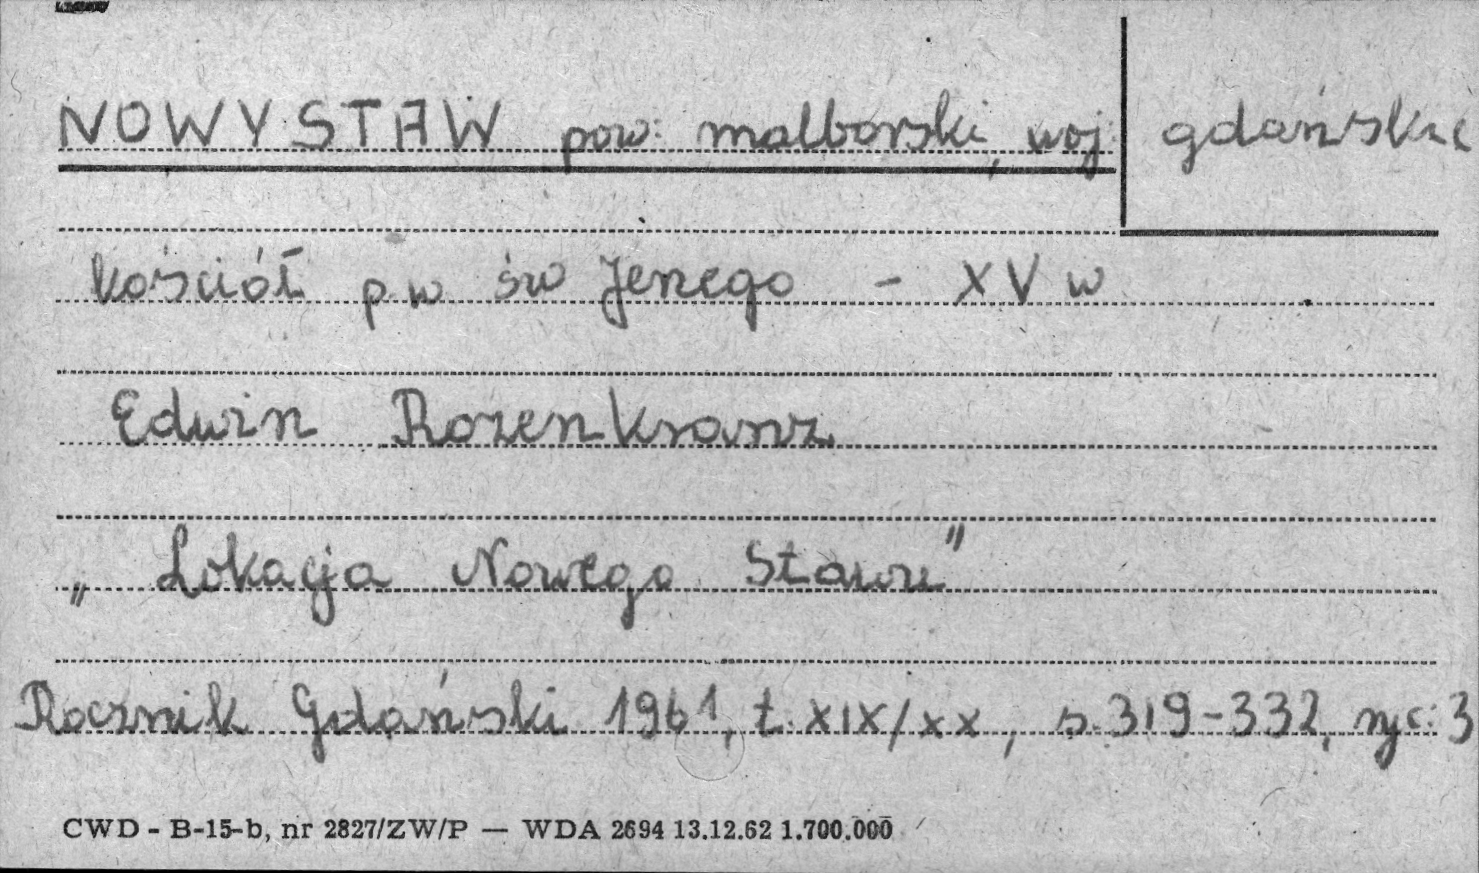 NOWY STAW pow. malborski, woj. gdańskie
kościół p.w św Jerzego - XV w
Edwin Rozenkranz
„Lokacja Nowego Stawu"
Rocznik Gdański 1961, t. XIX/XX, s. 319-332, ryc. 3
CWD - B-15-b, nr 2827/ZW/P — WDA 2694 13.12.62 1.700.000